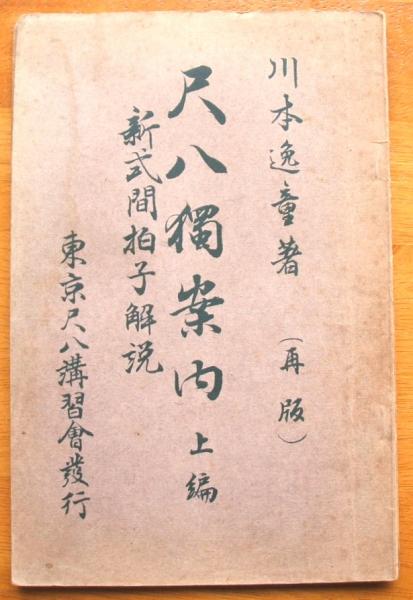 川本逸童著 (再版)
尺八獨案内 上編
新式間拍子解説
東京尺八講習會發行